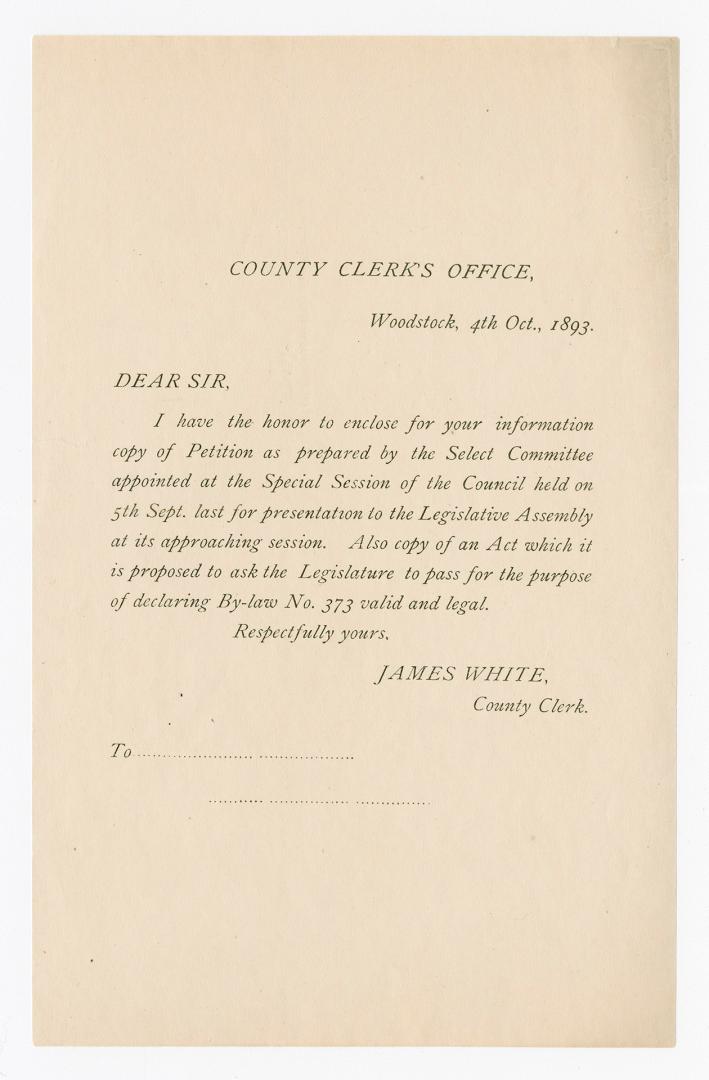 COUNTY CLERK'S OFFICE,
Woodstock, 4th Oct., 1893.
DEAR SIR,
I have the honor to enclose for your information
copy of Petition as prepared by the Select Committee
appointed at the Special Session of the Council held on
5th Sept. last for presentation to the Legislative Assembly
at its approaching session. Also copy of an Act which it
is proposed to ask the Legislature to pass for the purpose
of declaring By-law No. 373 valid and legal.
Respectfully yours,
JAMES WHITE,
County Clerk.
To.......................................
.......................................